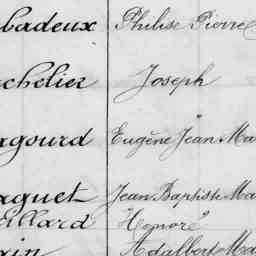 badeux Philise Pierre
chelier Joseph
agourd Eugène "Jean Ma
aquet Jean Baptiste Ma
Ellard "Honoré"
ain Adalbert Ma